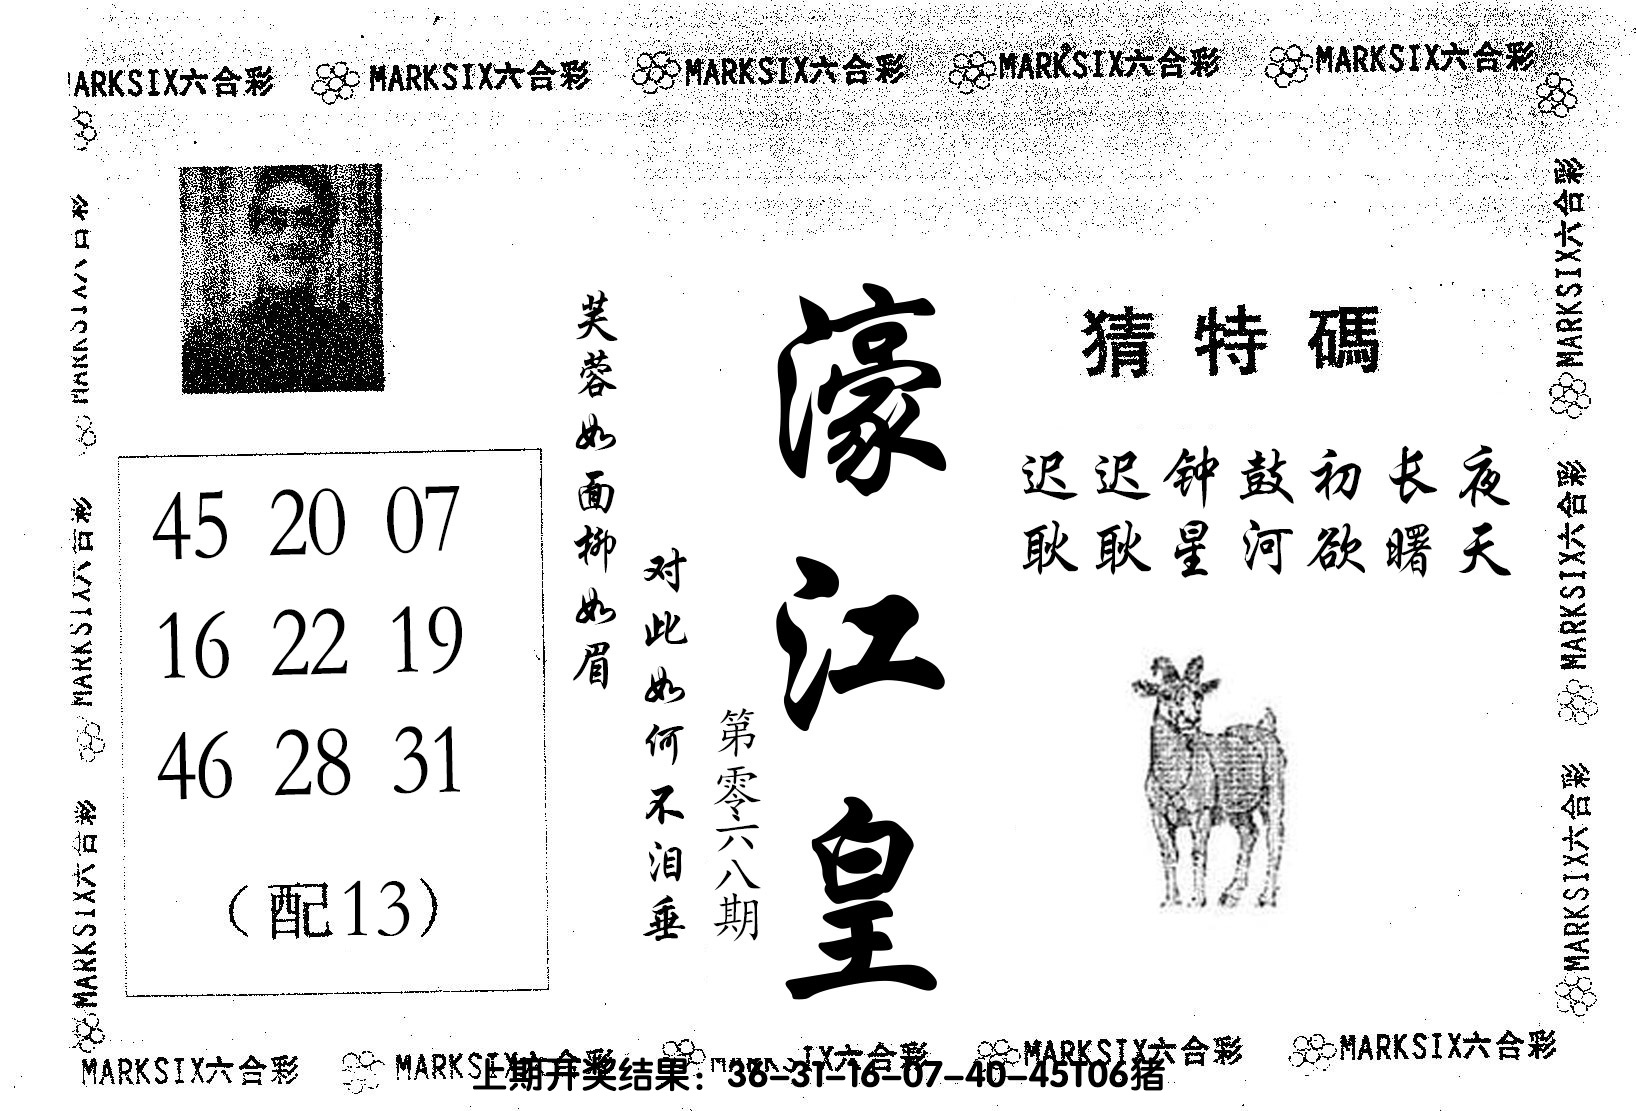 MARKSIX六合彩 MARKSIX六合彩 MARKSIX六合彩 MARKSIX六合彩 MARKSIX六合彩
猜特碼
迟迟钟鼓初长夜
耿耿星河欲曙天
濠江皇
第零六八期
芙蓉如面柳如眉
对此如何不泪垂
45 20 07
16 22 19
46 28 31
（配13）
MARKSIX六合彩
MARKSIX六合彩
MARKSIX六合彩
MARKSIX六合彩
MARKSIX六合彩
MARKSIX六合彩
MARKSIX六合彩 MARKSIX六合彩 IX六合彩 MARKSIX六合彩 MARKSIX六合彩
上期开奖结果：36-31-16-07-40-45T06猪